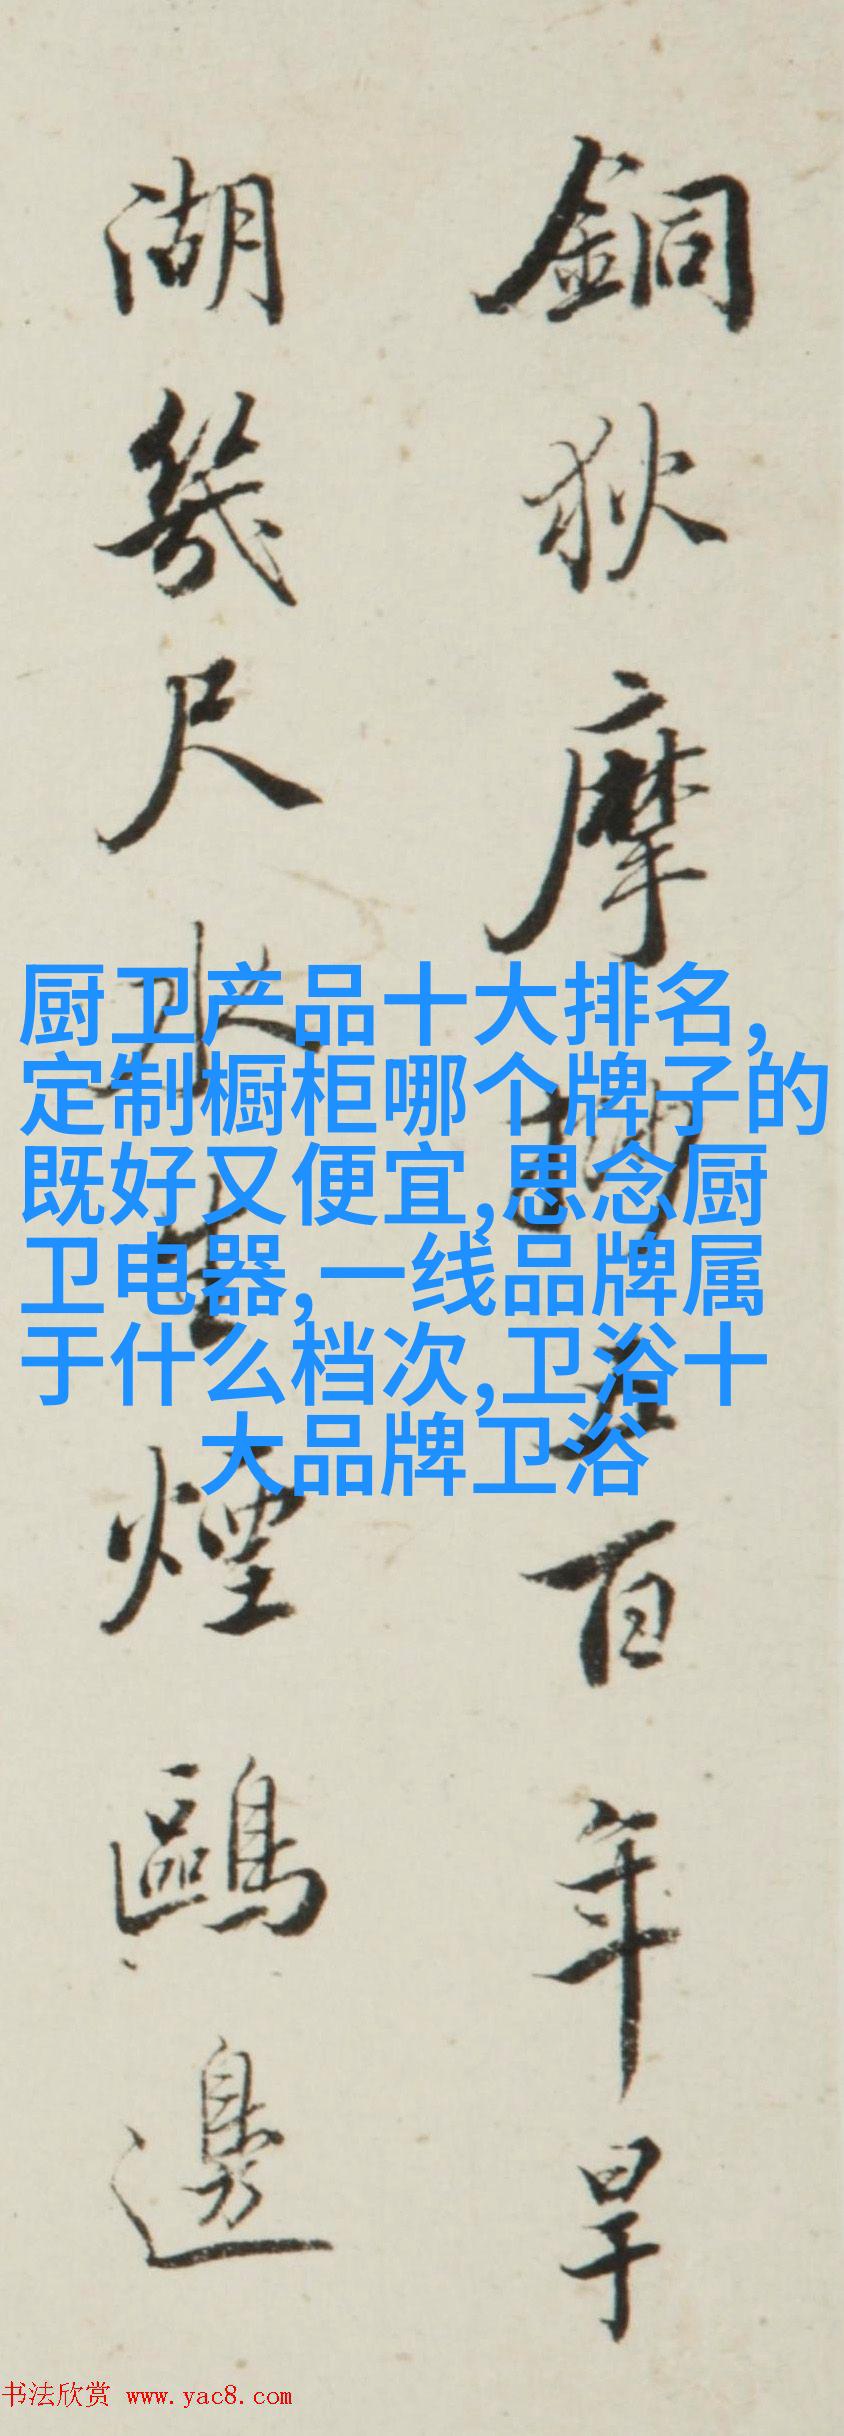 銅狄摩挲五百年旱
湖幾尺水生煙鷗邊
厨卫产品十大排名,
定制橱柜哪个牌子的
既好又便宜,思念厨
卫电器,一线品牌属
于什么档次,卫浴十
大品牌卫浴
书法欣赏 www.yac8.com